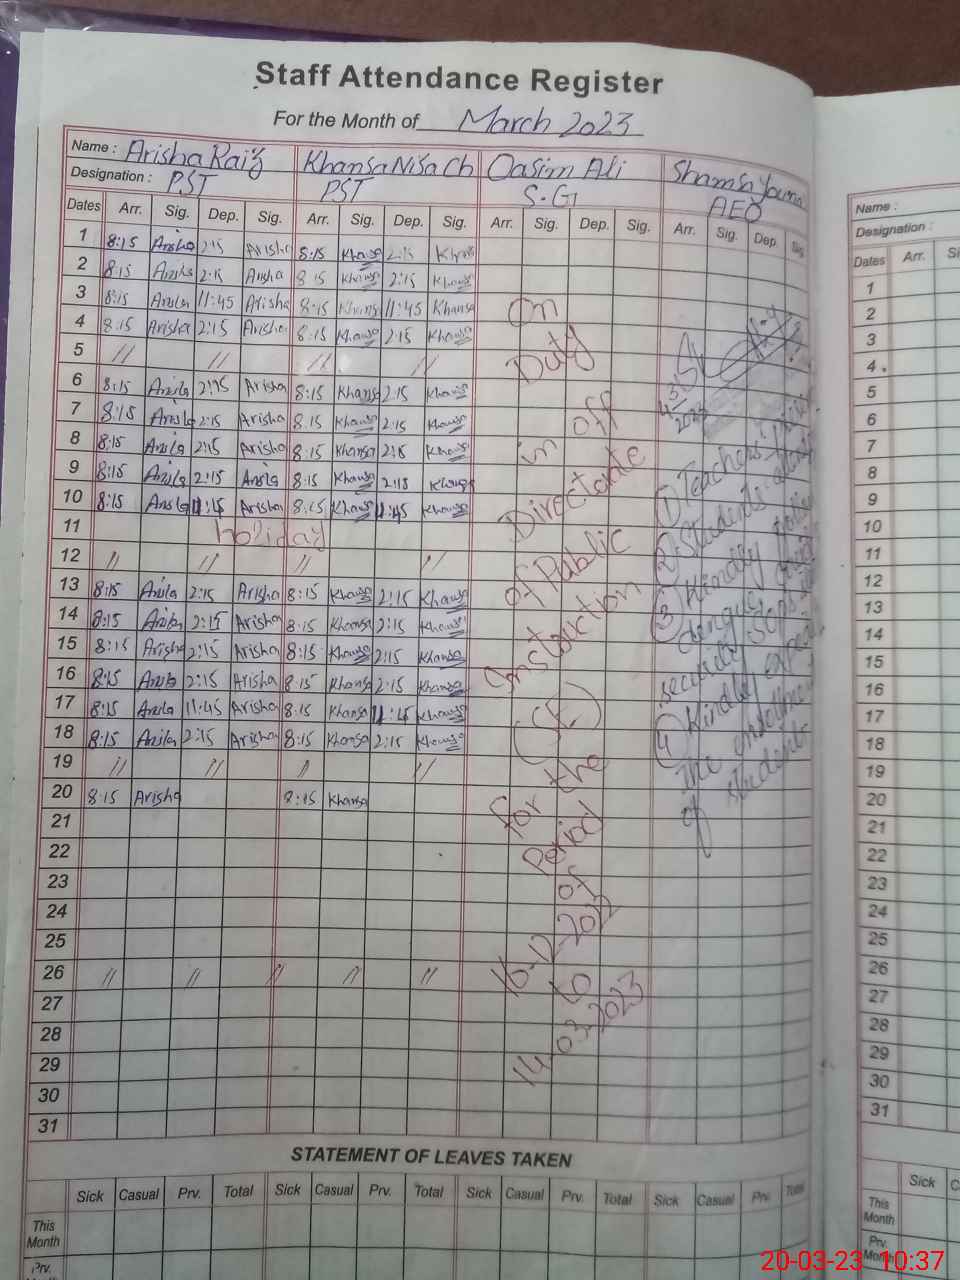 Staff Attendance Register
For the Month of March 2023
Name : Arisha Raiz Khansa Nisa Ch Qasim Ali Shamsa
Designation : PST PST S.G AEO
Dates Arr. Sig. Dep. Sig. Arr. Sig. Dep. Sig. Arr. Sig. Dep. Sig. Arr. Sig. Dep. Sig.
1 8:15 Arisha 2:15 Arisha 8:15 Khansa 2:15 Khansa
2 8:15 Arisha 2:15 Arisha 8:15 Khansa 2:15 Khansa
3 8:15 Arisha 11:45 Arisha 8:15 Khansa 11:45 Khansa
4 8:15 Arisha 2:15 Arisha 8:15 Khansa 2:15 Khansa
5 // // // //
6 8:15 Arisha 2:15 Arisha 8:15 Khansa 2:15 Khansa
7 8:15 Arisha 2:15 Arisha 8:15 Khansa 2:15 Khansa
8 8:15 Arisha 2:15 Arisha 8:15 Khansa 2:15 Khansa
9 8:15 Arisha 2:15 Arisha 8:15 Khansa 2:15 Khansa
10 8:15 Arisha 11:45 Arisha 8:15 Khansa 11:45 Khansa
11 holiday
12 // // // //
13 8:15 Arisha 2:15 Arisha 8:15 Khansa 2:15 Khansa
14 8:15 Arisha 2:15 Arisha 8:15 Khansa 2:15 Khansa
15 8:15 Arisha 2:15 Arisha 8:15 Khansa 2:15 Khansa
16 8:15 Arisha 2:15 Arisha 8:15 Khansa 2:15 Khansa
17 8:15 Arisha 11:45 Arisha 8:15 Khansa 11:45 Khansa
18 8:15 Arisha 2:15 Arisha 8:15 Khansa 2:15 Khansa
19 // // // //
20 8:15 Arisha 8:15 Khansa
21
22
23
24
25
26 // // // // //
27
28
29
30
31
On
Duty
in off
Directorate
of Public
Instruction
(SE)
for the
Period
of
16-12-2022
to
14-03-2023
4/3/2023
① Teachers
② Students
③ Kindly
dengue
security SOPs
④ Kindly
the enrollment
of students
STATEMENT OF LEAVES TAKEN
Sick Casual Prv. Total Sick Casual Prv. Total Sick Casual Prv. Total Sick Casual Prv. Total
This Month
Prv.
Name :
Designation :
Dates Arr.
1
2
3
4
5
6
7
8
9
10
11
12
13
14
15
16
17
18
19
20
21
22
23
24
25
26
27
28
29
30
31
Sick
This Month
Prv. Month
20-03-23 10:37